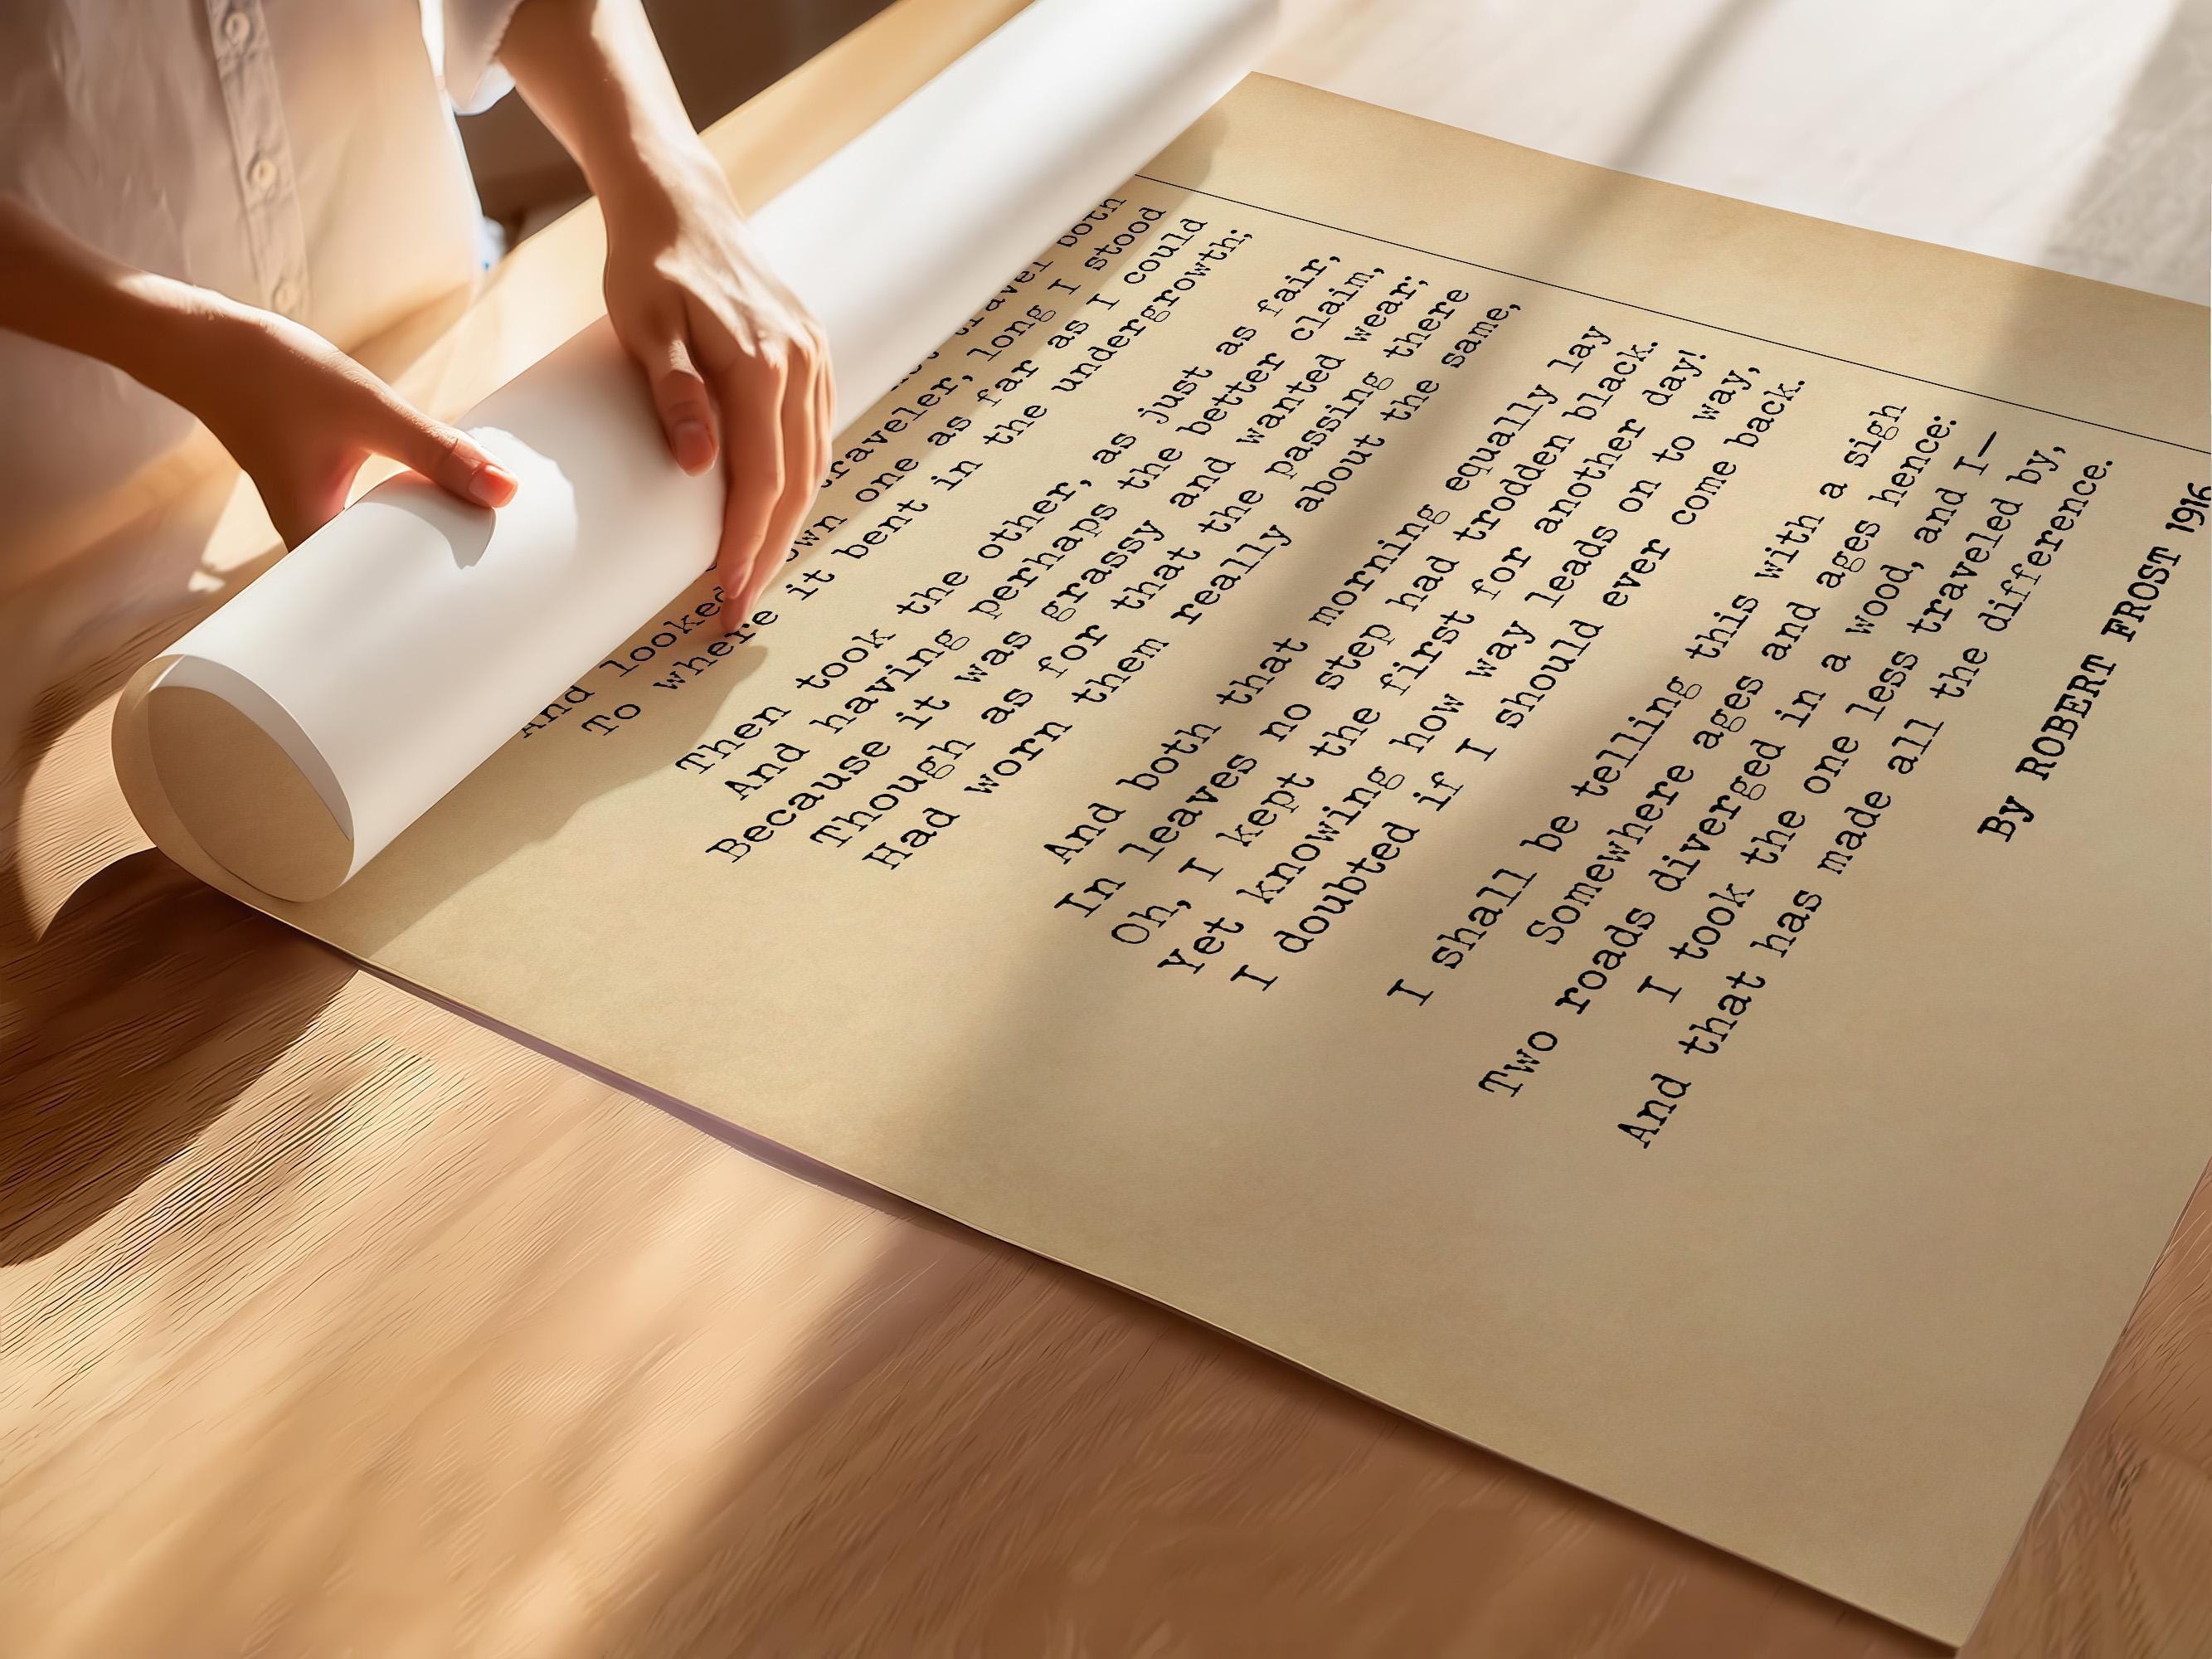 travel both
traveler, long I stood
And looked own one as far as I could
To where it bent in the undergrowth;
Then took the other, as just as fair,
And having perhaps the better claim,
Because it was grassy and wanted wear;
Though as for that the passing there
Had worn them really about the same,
And both that morning equally lay
In leaves no step had trodden black.
Oh, I kept the first for another day!
Yet knowing how way leads on to way,
I doubted if I should ever come back.
I shall be telling this with a sigh
Somewhere ages and ages hence:
Two roads diverged in a wood, and I—
I took the one less traveled by,
And that has made all the difference.
By ROBERT FROST 1916